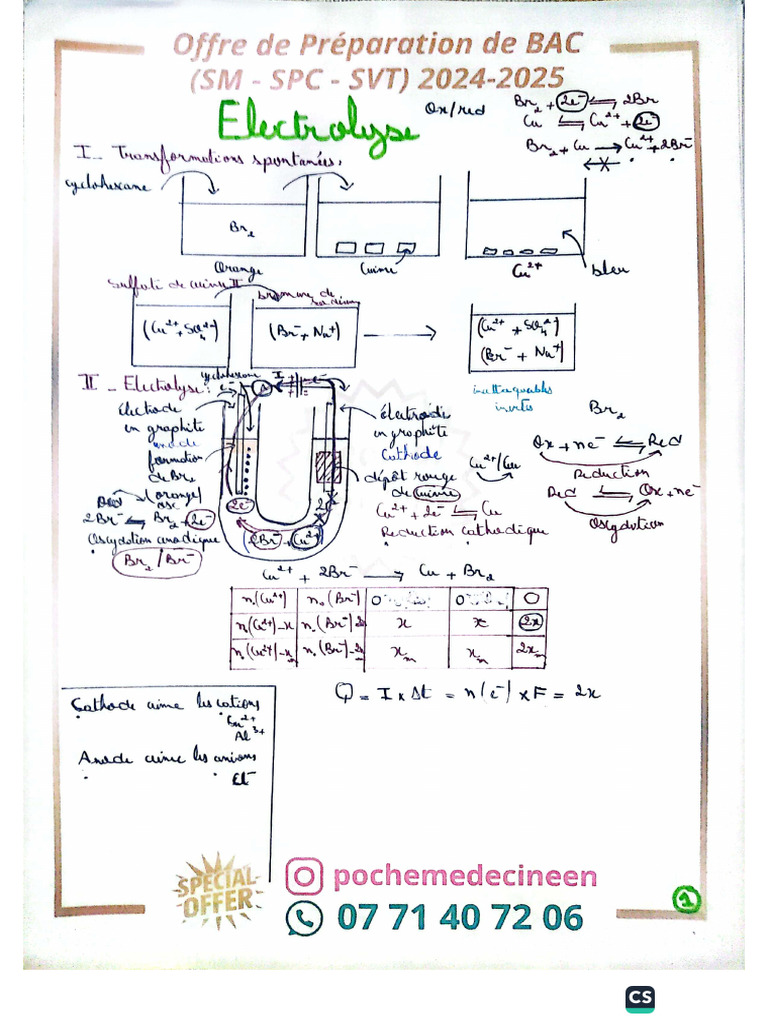 Offre de Préparation de BAC
(SM - SPC - SVT) 2024-2025
Electrolyse
Ox/red
Br2 + 2e- ⇌ 2Br
Cu ⇌ Cu2+ + 2e-
Br2 + Cu → Cu2+ + 2Br-
I - Transformations spontanées.
cyclohexane
Br2
Orange
Cuivre
Cu2+
bleu
Sulfate de cuivre II
(Cu2+ + SO4 2-)
(Br- + Na+)
(Cu2+ + SO4 2-)
(Br- + Na+)
inertes
II - Electrolyse :
cyclohexane
I
e-
électrode
en graphite
anode
formation
de Br2
(orange)
électrode
en graphite
Cathode
dépôt rouge
de cuivre
Cu2+/Cu
Cu2+ + 2e- ⇌ Cu
Reduction cathodique
Red
2Br- ⇌ Br2 + 2e-
Oxydation anodique
Br2/Br-
2e-
2e-
2Br-
Cu2+
Br2
Ox + ne- ⇌ Red
Reduction
Red ⇌ Ox + ne-
Oxydation
Cu2+ + 2Br- → Cu + Br2
n.(Cu2+) n.(Br-) 0 0 0
n.(Cu2+)-x n.(Br-)-2x x x 2x
n.(Cu2+)-xm n.(Br-)-2x xm xm 2xm
Q = I x Δt = n(e-) x F = 2x
Cathode aime les cations
Cu2+
Al3+
Anode aime les anions
Cl-
SPECIAL
OFFER
pochemedecineen
07 71 40 72 06
1
CS